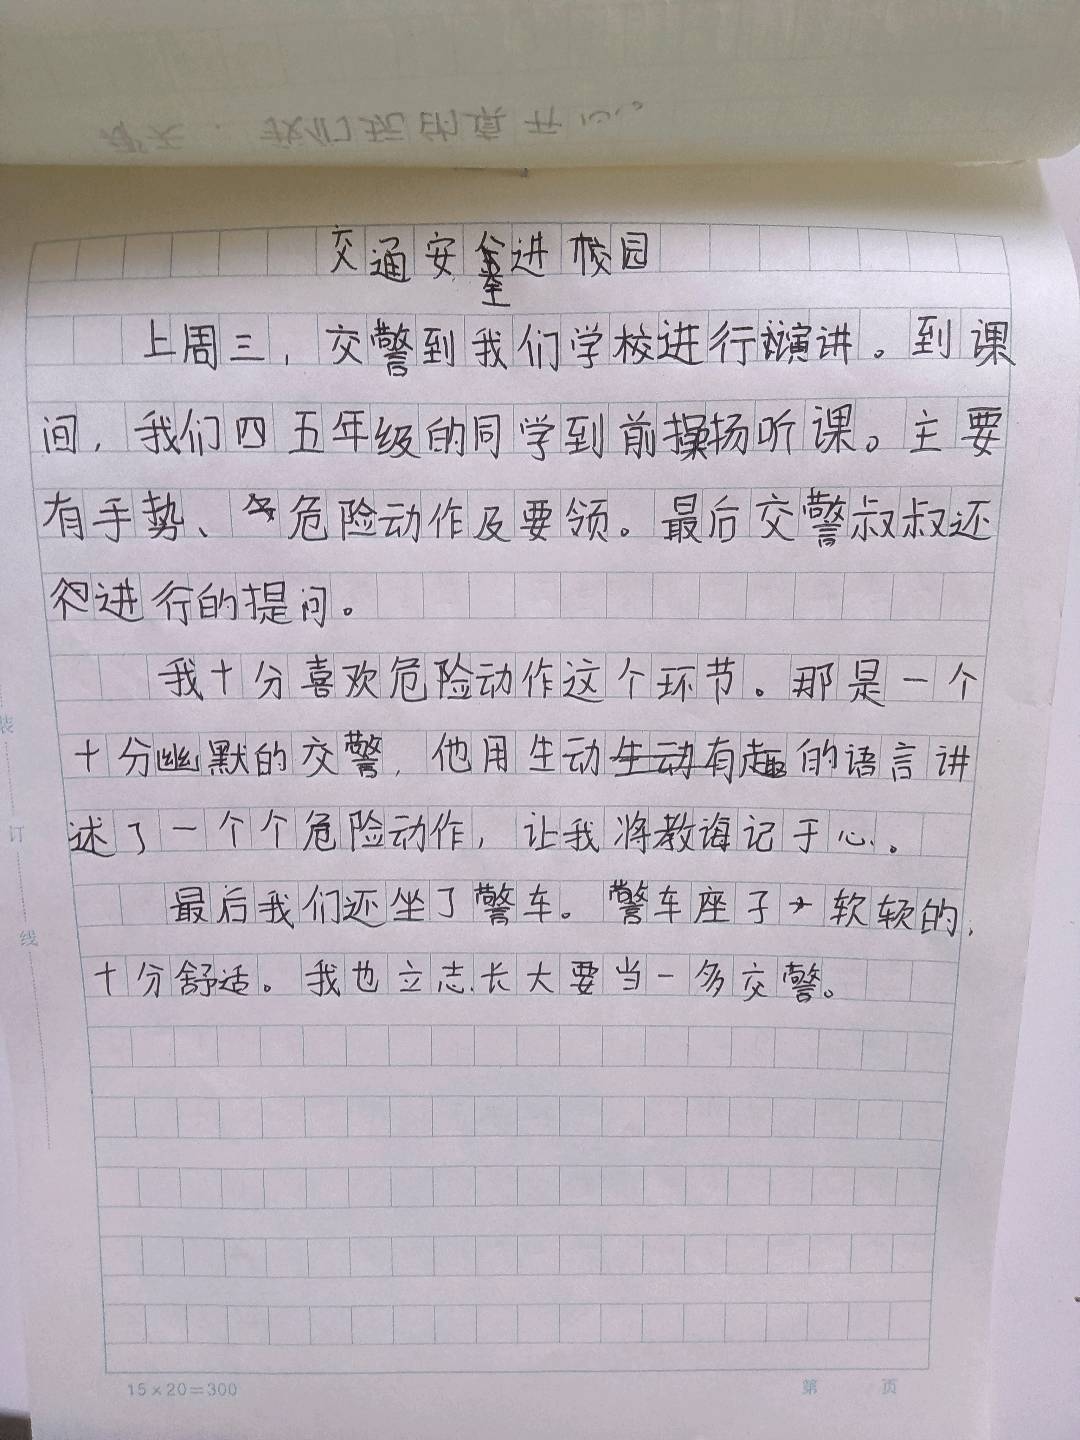 昨天,我们玩的真开心。
交通安全进校园
上周三，交警到我们学校进行演讲。到课
间，我们四五年级的同学到前操场听课。主要
有手势、危险动作及要领。最后交警叔叔还
进行的提问。
我十分喜欢危险动作这个环节。那是一个
十分幽默的交警，他用生动生动有趣的语言讲
述了一个个危险动作，让我将教诲记于心。
最后我们还坐了警车。警车座子软软的，
十分舒适。我也立志长大要当一多交警。
装
订
线
15×20=300
第 页